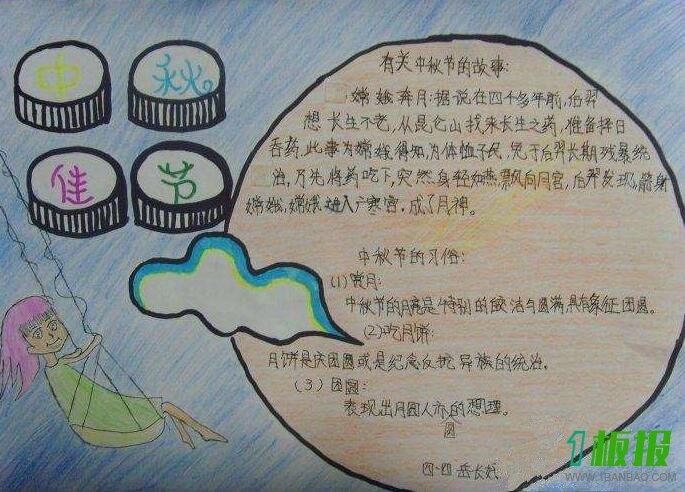 中 秋
佳 节
有关中秋节的故事:
嫦娥奔月:据说在四个多年前,后羿
想长生不老,从昆仑山找来长生之药,准备择日
吞药,此事为嫦娥得知,为体恤子民,免于后羿长期残暴统
治,万先将药吃下,突然身轻如燕飘向月宫,后羿发现,箭射
嫦娥,嫦娥进入广寒宫,成了月神。
中秋节的习俗:
(1)赏月:
中秋节的月亮是个特别的皎洁与圆满,具有象征团圆。
(2)吃月饼:
月饼是庆团圆或是纪念反抗异族的统治。
(3)团圆:
表现出月圆人亦的想理。
圆
四·四 岳长
1板报
WWW.1BANBAO.COM